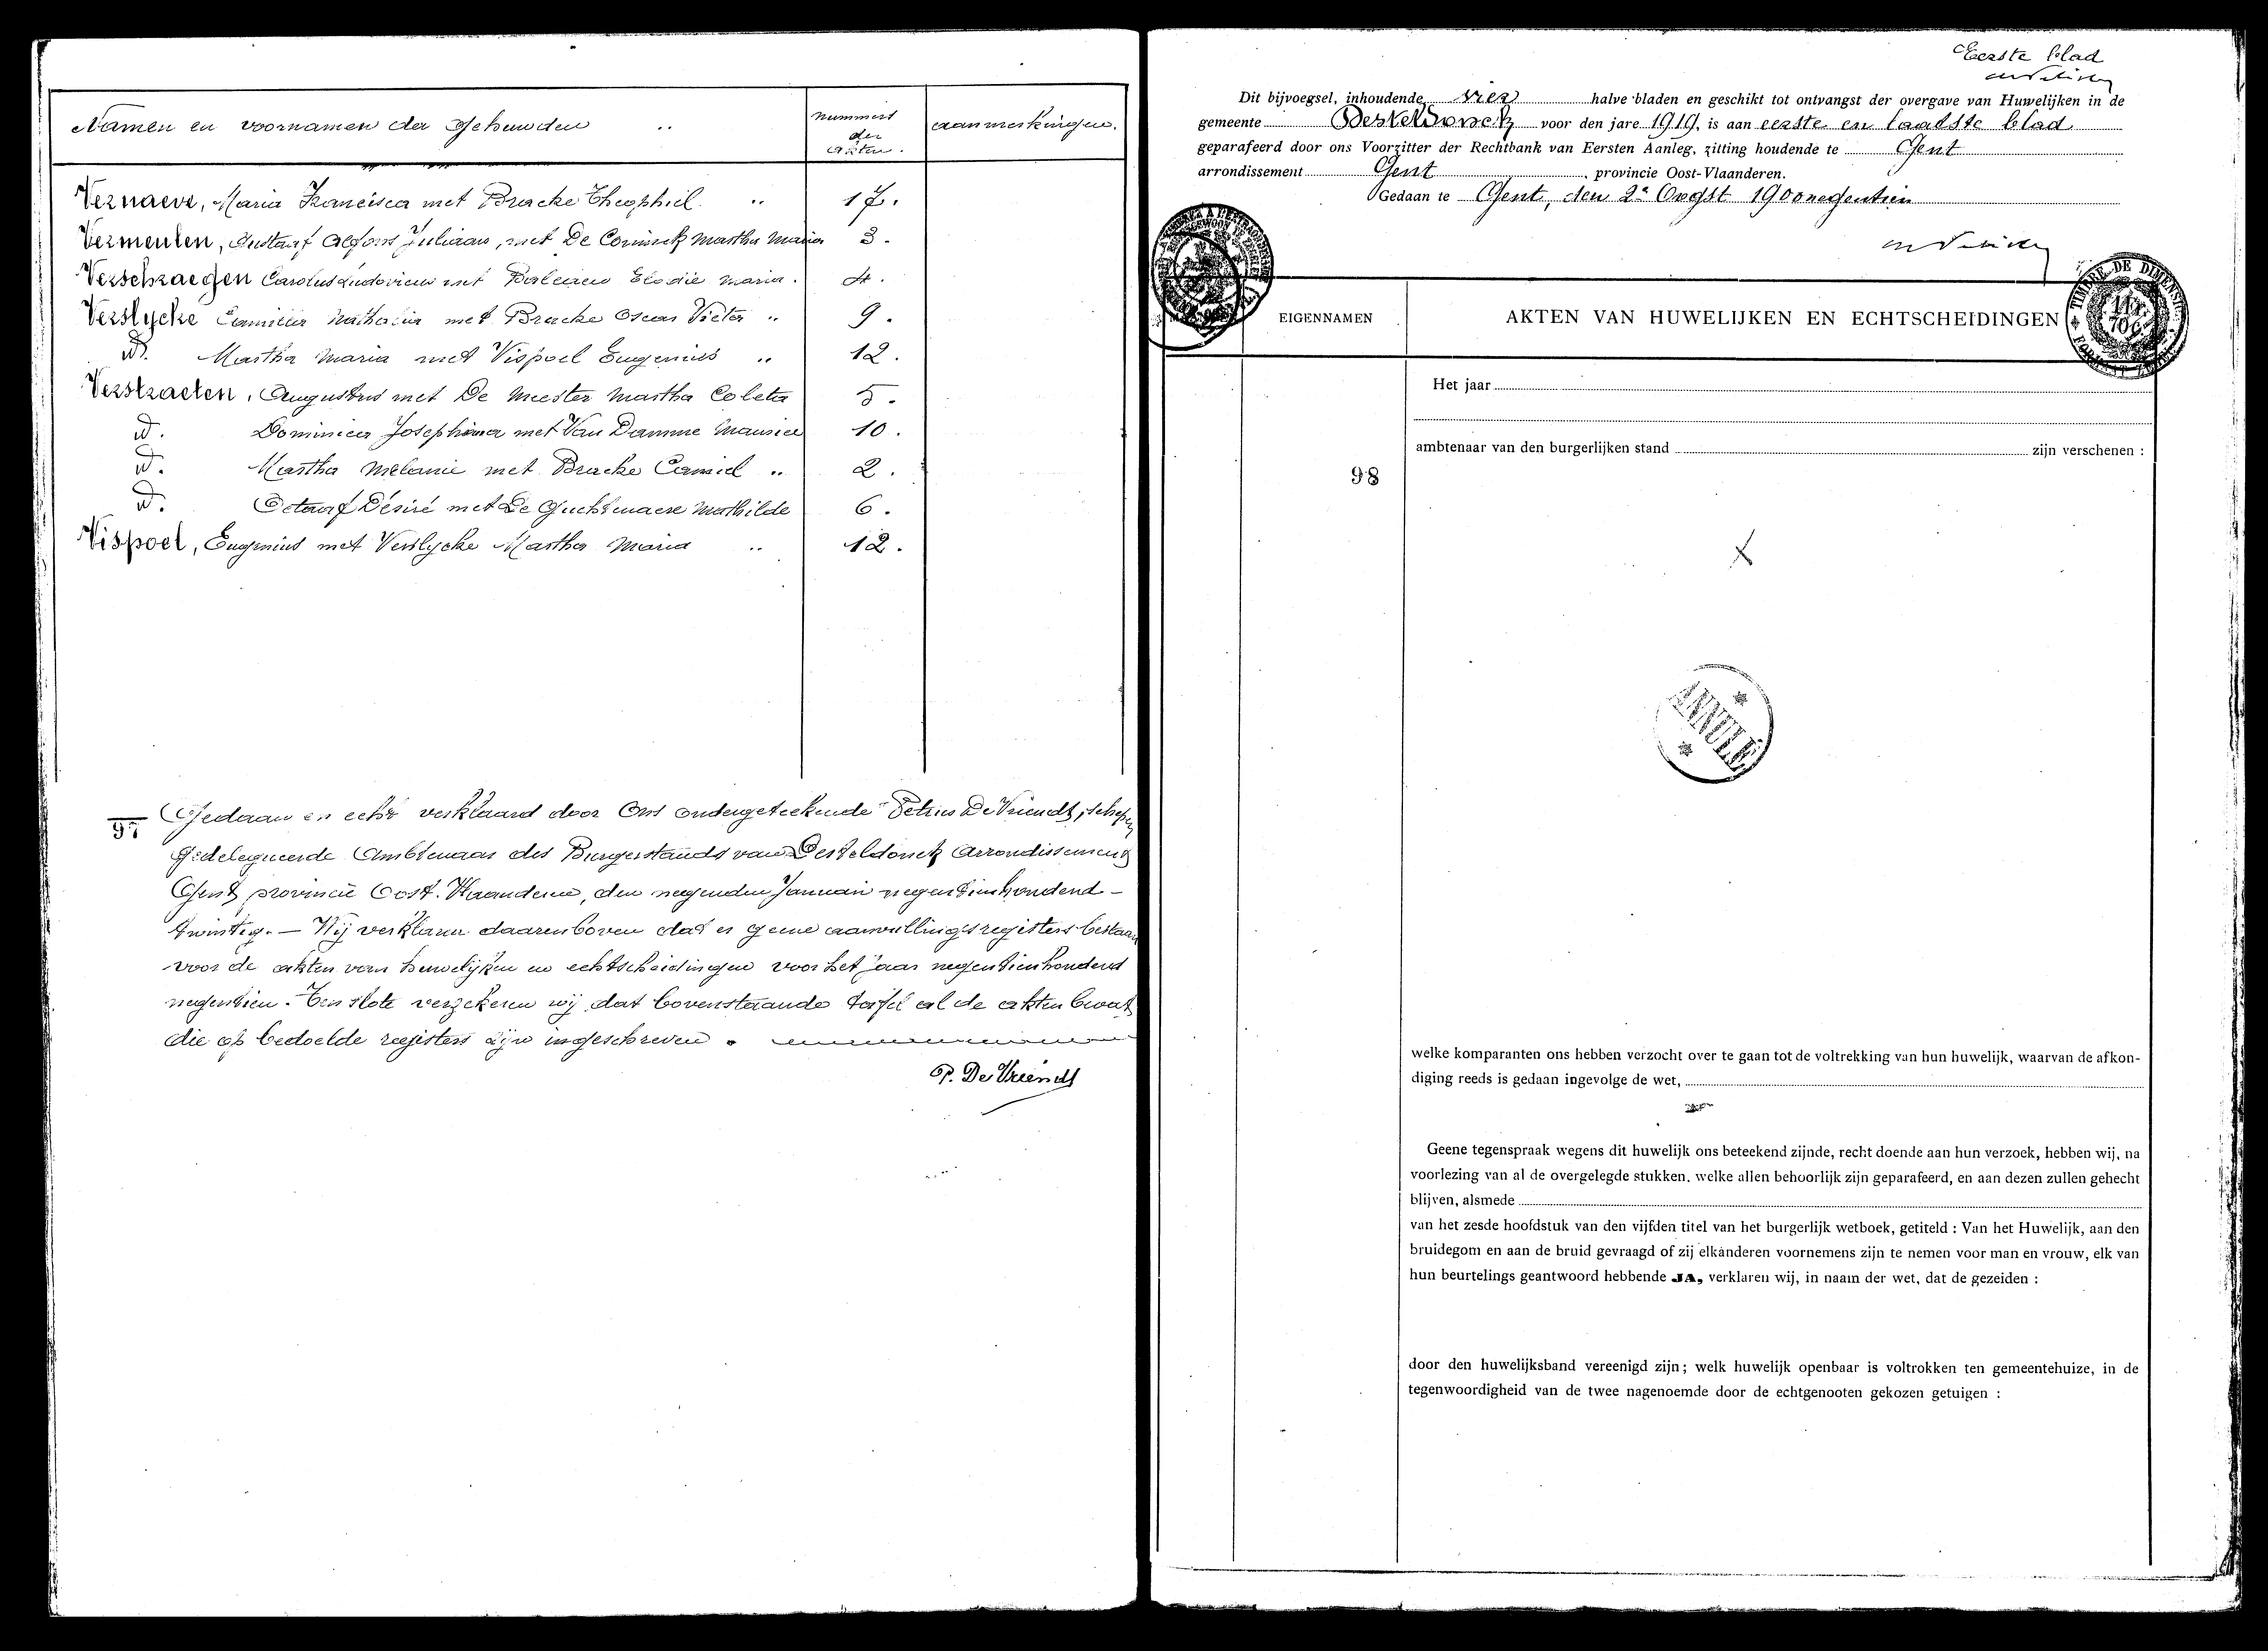 Namen en voornamen der Gehuwden ..
nummers
der
akten.
aanmerkingen.
Vernaeve, Maria Francisca met Bracke Theophiel .. 17.
Vermeulen, Gustaaf Alfons Juliaan, met De Coninck Martha Maria 3.
Verschraegen Carolus Ludovicus met Elodie Maria. 4.
Verslycke Camilia Nathalia met Bracke Oscar Victor .. 9.
id. Martha Maria met Vispoel Eugenius .. 12.
Verstraeten, Augustus met De Meester Martha Coleta 5.
id. Dominica Josephina met Van Damme Maurice 10.
id. Martha Melanie met Bracke Camiel .. 2.
id. Octaaf Désiré met De Guchtenaere Mathilde 6.
Vispoel, Eugenius met Verslycke Martha Maria .. 12.
97
Gedaan en echt verklaard door Ons ondergeteekende Petrus De Vriendt, schepen
Gedelegueerde Ambtenaar des Burgerstands van Desteldonck Arrondissement
Gent provincie Oost-Vlaanderen, den negenden Januari negentienhonderd-
twintig. — Wij verklaren daarenboven dat er geene aanvullingsregisters bestaan
voor de akten van huwelijken en echtscheidingen voor het jaar negentienhonderd
negentien. Ten slote verzekeren wij dat bovenstaande tafel al de akten bevat
die op bedoelde registers zijn ingeschreven.
P. De Vriendt
Eerste blad
Dit bijvoegsel, inhoudende vier halve bladen en geschikt tot ontvangst der overgave van Huwelijken in de
gemeente Desteldonck voor den jare 1919, is aan eerste en laatste blad
geparafeerd door ons Voorzitter der Rechtbank van Eersten Aanleg, zitting houdende te Gent
arrondissement Gent, provincie Oost-Vlaanderen.
Gedaan te Gent, den 2n Oogst 1900negentien
TIMBRE DE DIMENSION
EIGENNAMEN
AKTEN VAN HUWELIJKEN EN ECHTSCHEIDINGEN
Het jaar
ambtenaar van den burgerlijken stand zijn verschenen :
98
ANNULÉ
welke komparanten ons hebben verzocht over te gaan tot de voltrekking van hun huwelijk, waarvan de afkon-
diging reeds is gedaan ingevolge de wet,
Geene tegenspraak wegens dit huwelijk ons beteekend zijnde, recht doende aan hun verzoek, hebben wij, na
voorlezing van al de overgelegde stukken, welke allen behoorlijk zijn geparafeerd, en aan dezen zullen gehecht
blijven, alsmede
van het zesde hoofdstuk van den vijfden titel van het burgerlijk wetboek, getiteld : Van het Huwelijk, aan den
bruidegom en aan de bruid gevraagd of zij elkanderen voornemens zijn te nemen voor man en vrouw, elk van
hun beurtelings geantwoord hebbende JA, verklaren wij, in naam der wet, dat de gezeiden :
door den huwelijksband vereenigd zijn; welk huwelijk openbaar is voltrokken ten gemeentehuize, in de
tegenwoordigheid van de twee nagenoemde door de echtgenooten gekozen getuigen :